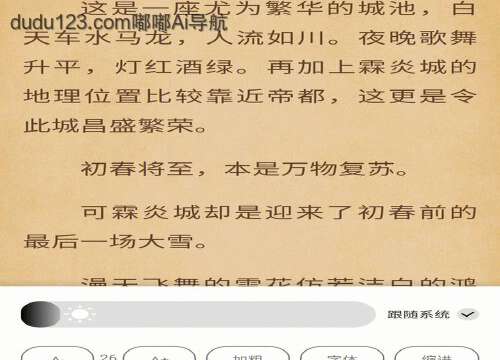 这是一座尤为繁华的城池，白
dudu123.com嘟嘟Ai导航
天车水马龙，人流如川。夜晚歌舞
升平，灯红酒绿。再加上霖炎城的
地理位置比较靠近帝都，这更是令
此城昌盛繁荣。
初春将至，本是万物复苏。
可霖炎城却是迎来了初春前的
最后一场大雪。
漫天飞舞的雪花仿若洁白的鸿
跟随系统
A- 26 A+ 加粗 字体 缩进